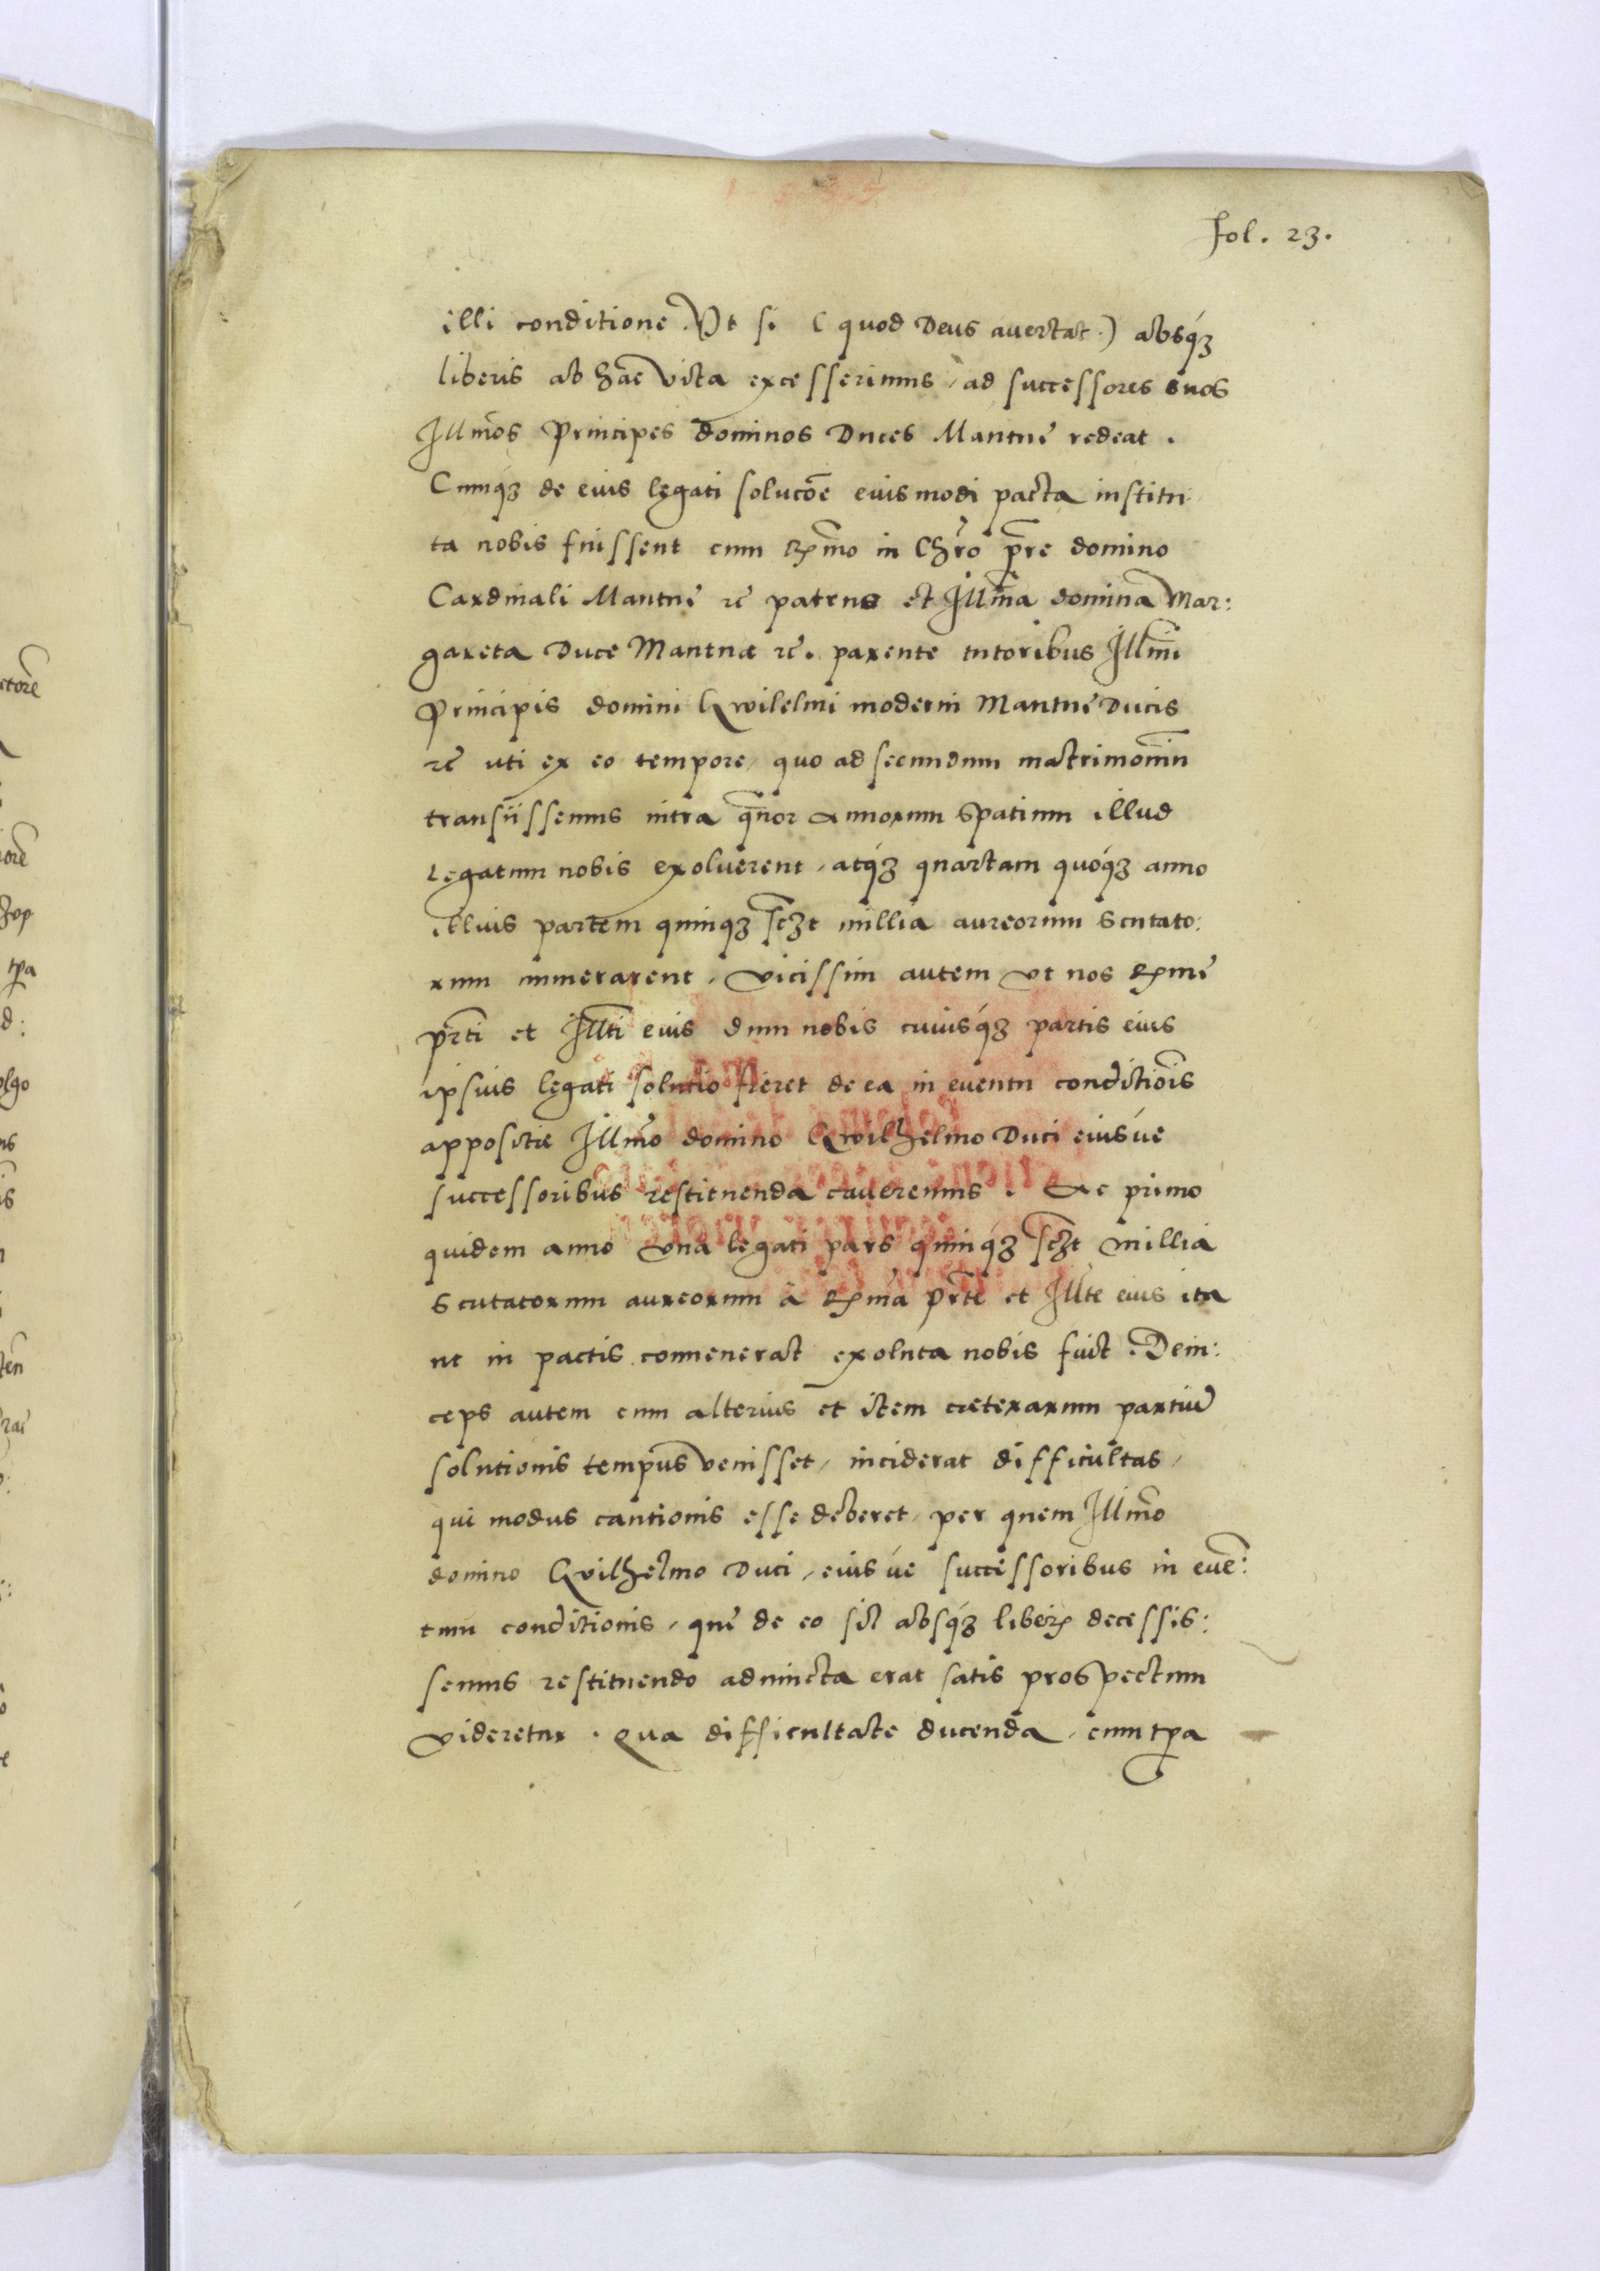 fol. 23.
illi conditione. Vt si ( quod Deus auertat.) absq́ꝫ
liberis ab hac vita excesserimus, ad successores suos
Illmõs Principes dominos Duces Mantuę redeat.
Cumq́ꝫ de eius legati solucõe eiusmodi pacta institu
ta nobis fuissent cum Rmõ in Chrõ pr̃e domino
Cardinali Mantuę ⁊c̃ patruo et Illm̃a domina Mar:
gareta Duce Mantuæ ⁊c̃. parente tutoribus Illm̃i
Principis domini Gwilelmi moderni Mantuę Ducis
⁊c̃ uti ex eo tempore, quo ad secundum matrimoniũ
transiissemus intra qũor annorum spatium illud
legatum nobis exoluerent, atq́ꝫ quartam quoq́ꝫ anno
illius partem quinqꝫ sc̃ꝫt millia aureorum scutato:
rum numerarent, vicissim autem vt nos Rmę
pr̃ti et Illt̃i eius dum nobis cuiusq́ꝫ partis eius
ipsius legati solutio fieret de ea in euentu conditiõis
appositę Illmõ domino Gwilhelmo Duci eiusúe
successoribus restituenda caueremus. Ac primo
quidem anno vna legati pars quinq́ꝫ sc̃ꝫt millia
scutatorum aureorum à Rm̃a pr̃te et Illt̃e eius ita
ut in pactis conuenerat exoluta nobis fuit. Dein:
ceps autem cum alterius et item cæterarum partiũ
solutionis tempus venisset, inciderat difficultas,
qui modus cautionis esse deberet, per quem Illmõ
domino Gvilhelmo Duci, eiusúe successoribus in euẽ:
tum conditionis, quę de eo si absq́ꝫ liberis decessis:
semus restituendo adiuncta erat satis prospectum
videretur. Qua difficultate ducenda, cum tp̃a